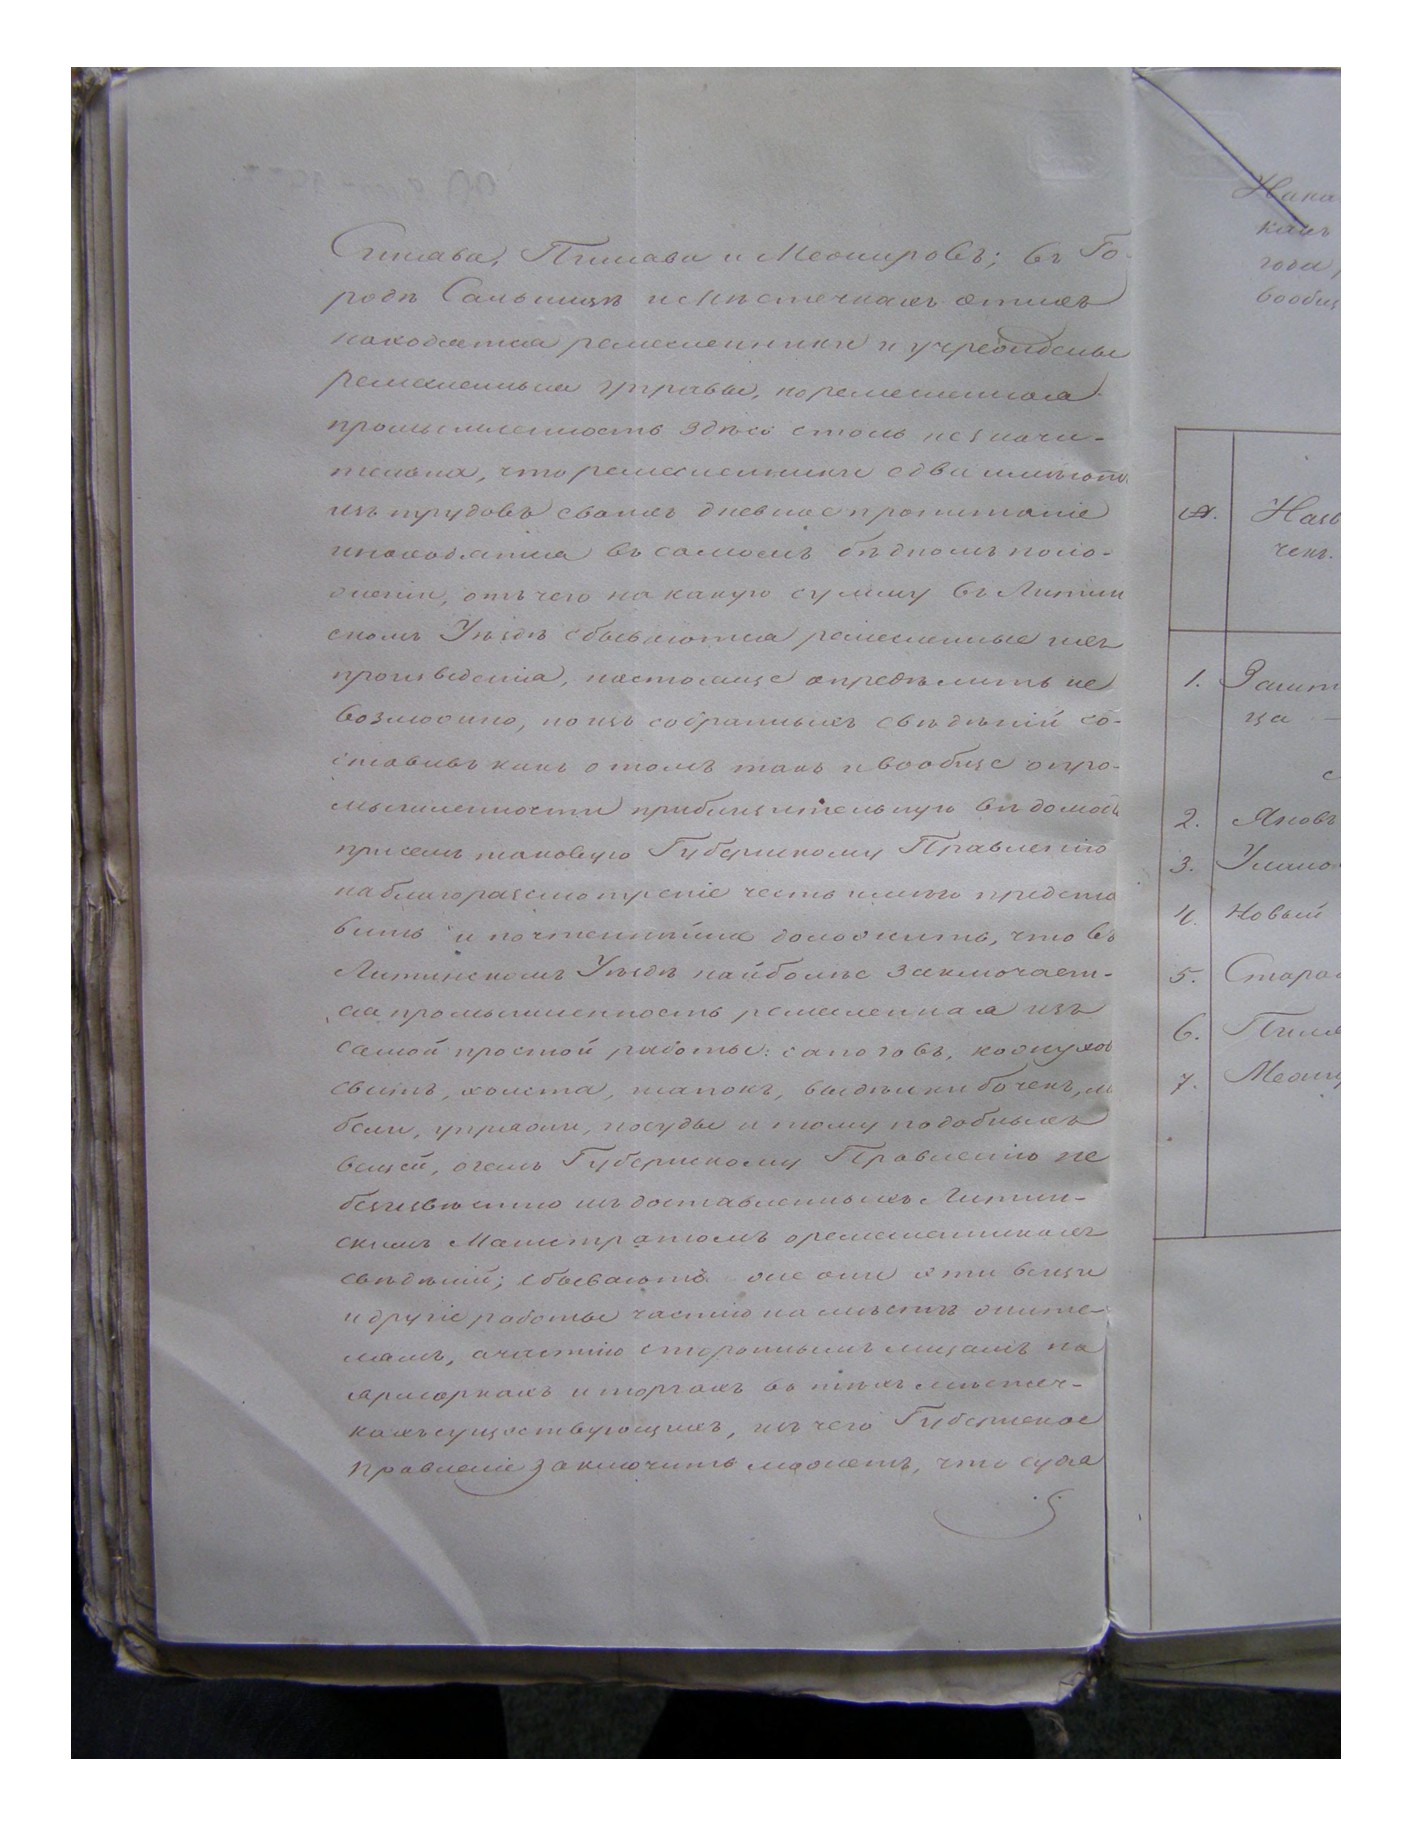 Синява, Пилава и Межировъ; въ Го-
родѣ Сальницѣ и мѣстечкахъ этихъ
находятся ремесленники и учреждены
ремесленныя управы, но ремесленная
промышленность здѣсь столь незначи-
тельна, что ремесленники едва имѣютъ
изъ трудовъ своихъ дневное пропитаніе
и находятся въ самомъ бѣдномъ поло-
женіи, отъ чего на какую сумму въ Литин
скомъ Уѣздѣ сбываются ремесленные ихъ
произведенія, настояще опредѣлить не
возможно, но изъ собранныхъ свѣдѣній со-
ставивъ какъ о томъ такъ и вообще о про-
мышленности приблизительную вѣдомость
при семъ таковую Губернскому Правленію
на благоразсмотреніе честь имѣю предста
вить и почтеннѣйше доложить, что въ
Литинскомъ Уѣздѣ найболѣе заключает-
ся промышленность ремесленная изъ
самой простой работы: сапоговъ, кожуховъ
свитъ, холста, шапокъ, выдѣлки бочекъ, ме
бели, упряжи, посуды и тому подобныхъ
вещей, о чемъ Губернскому Правленію не
безизвѣстно изъ доставленныхъ Литин-
скимъ Магистратомъ о ремесленникахъ
свѣдѣній; сбываютъ же они эти вещи
и другіе работы частію на мѣстѣ жите-
лямъ, а частію стороннымъ лицамъ на
ярморкахъ и торгахъ въ тѣхъ мѣстеч-
кахъ существующихъ, изъ чего Губернское
Правленіе заключить можетъ, что судя
какъ
года,
вообщ
№.
Назв
чекъ.
1. Зашт
ца —
2. Яновъ
3. Улано
4. Новый
5. Старо
6. Пиля
7. Межир